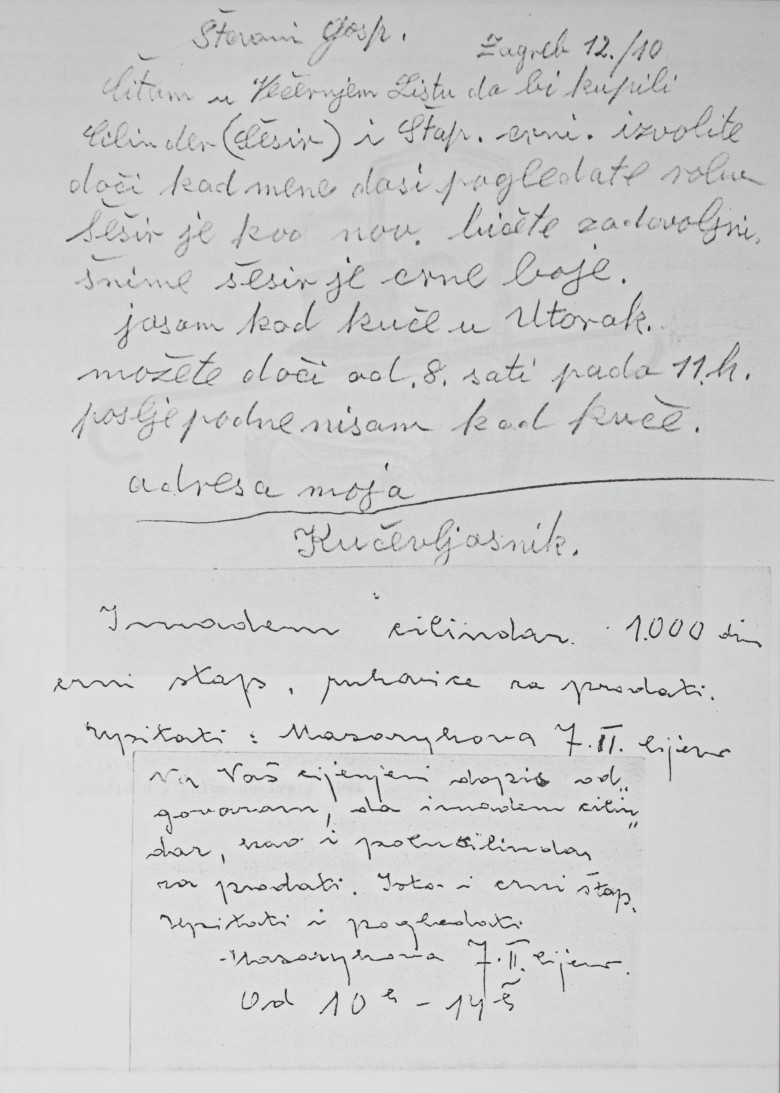 Štovani Gosp.
Zagreb 12./10
čitam u Večernjem Listu da bi kupili
Cilinder (šešir) i Štap. crni. izvolite
doči kad mene dasi pogledate robu
šešir je kao nov. bićete zadovoljni,
šnime šešir je crne boje.
jasam kod kuče u Utorak.
možete doči od. 8. sati pada 11.h.
poslje podne nisam kod kuče.
adresa moja
Kučevljasnik.
Imadem cilindar. 1.000 din
crni stap, rukavice za prodati.
Upitati: Masarykova 7. II. lijevo
Na Vaš cijenjeni dopis od„
govaram, da imadem cilin„
dar, kao i polucilindar
za prodati. Isto i crni štap.
Upitati i pogledati
Masarykova 7. II. lijevo.
Od 10 h - 14 h